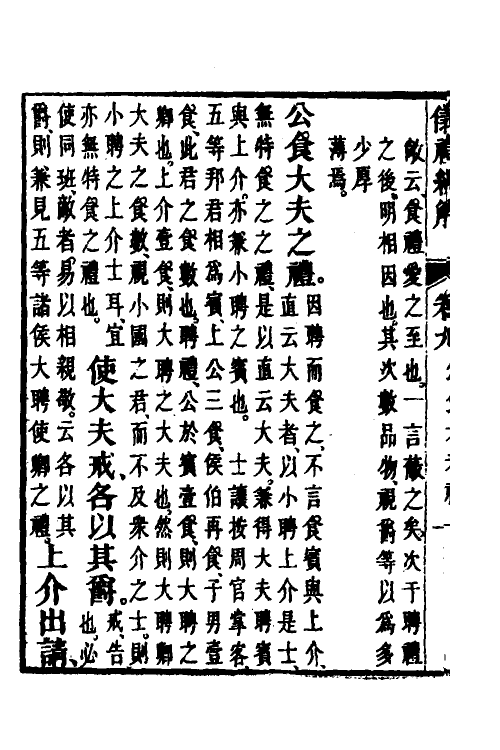 儀禮經解 卷九
敵云、食禮愛之至也。一言蔽之矣。次于聘禮
之後、明相因也。其次數品物、視爵等以為多
少厚
薄焉。
公食大夫之禮。
因聘而食之、不言食賓與上介、
直云大夫者、以小聘上介是士、
無特食之之禮、是以直云大夫、兼得大夫聘賓
與上介、亦兼小聘之賓也。 士讓按周官掌客、
五等邦君相為賓、上公三食、侯伯再食、子男壹
食、此君之食數也。聘禮、公於賓壹食、則大聘之
卿也。上介壹食、則大聘之大夫也。然則大聘卿
大夫之食數、視小國之君、而不及衆介之士。則
小聘之上介士耳、宜
亦無特食之禮也。
使大夫戒、各以其爵。
戒、告
也。必
使同班、敵者、易以相親敬。云各以其
爵、則兼見五等諸侯大聘使卿之禮。
上介出請、